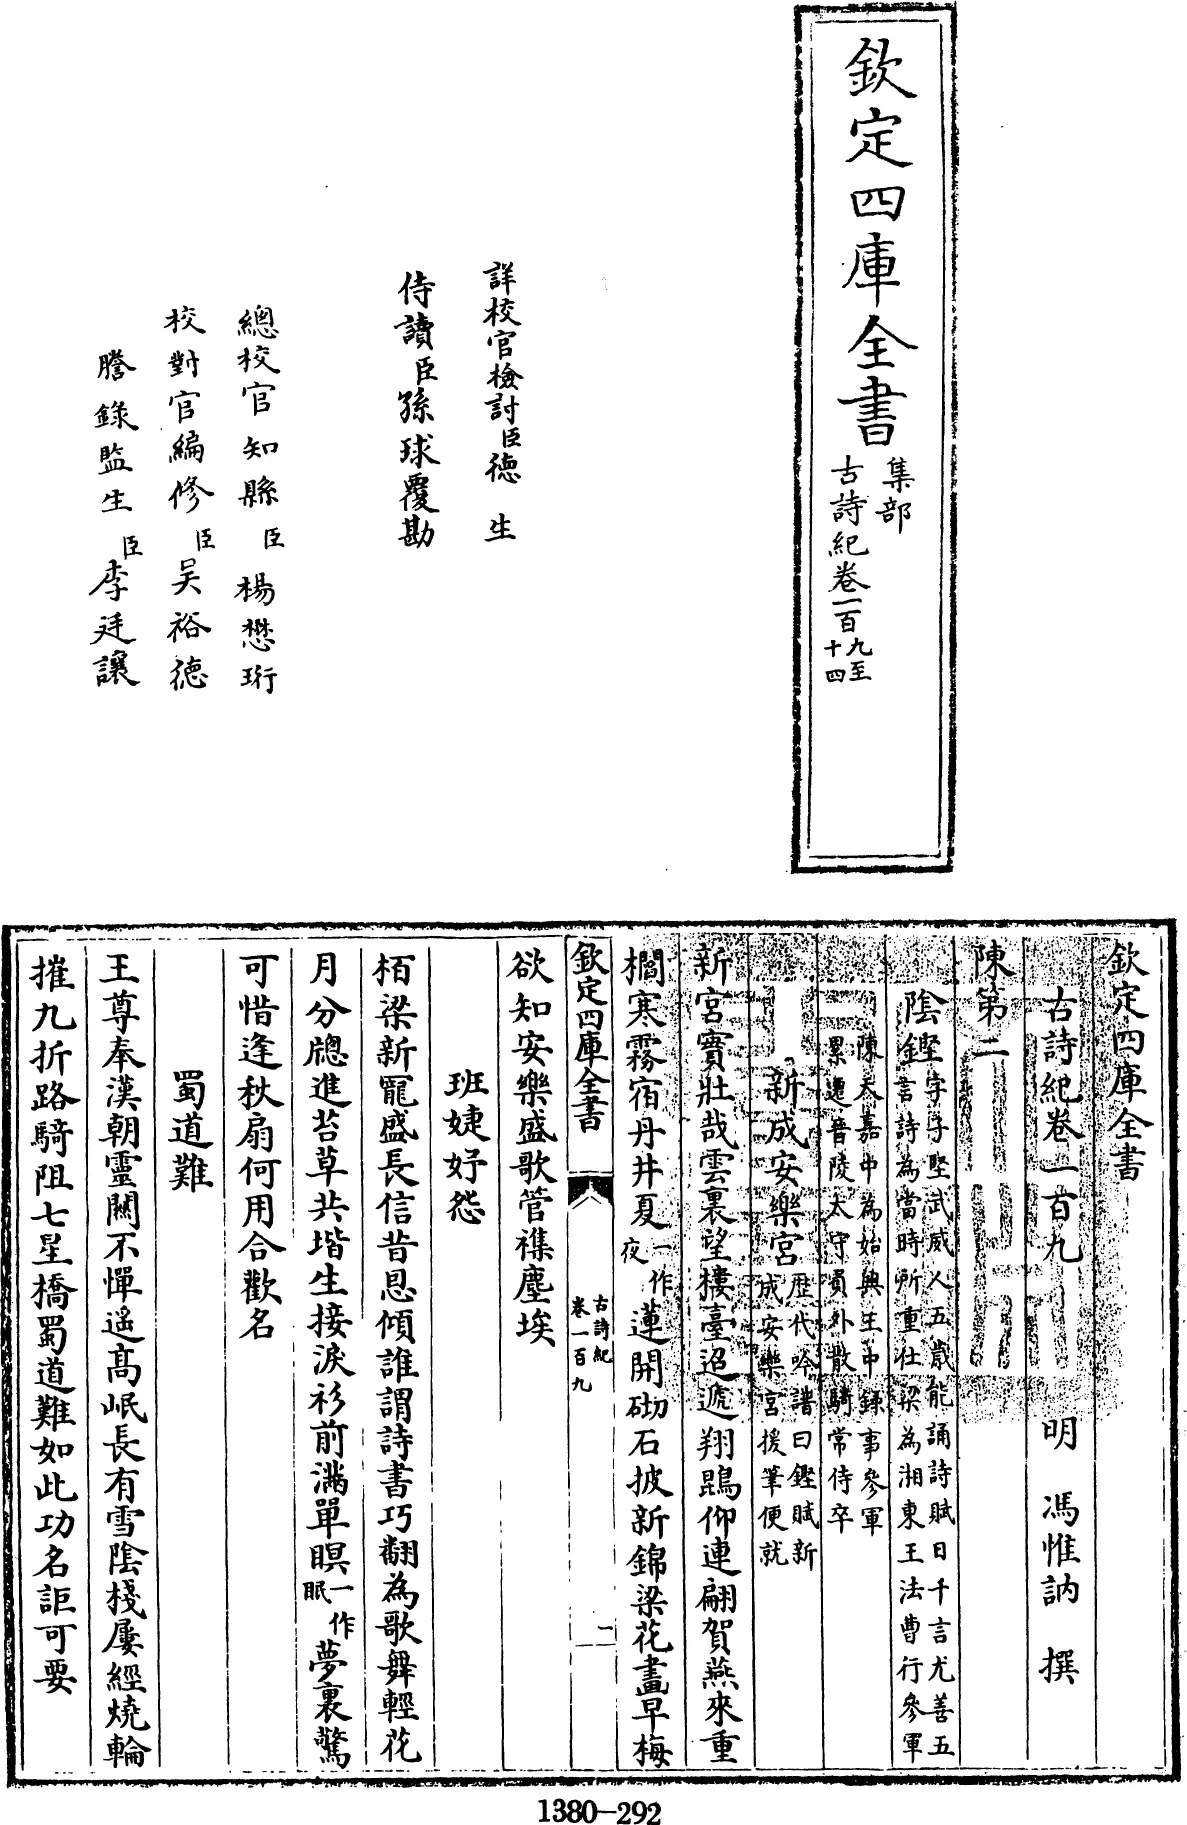 欽定四庫全書
集部
古詩紀卷一百九至十四
詳校官檢討臣德生
侍讀臣孫球覆勘
總校官知縣臣楊懋珩
校對官編修臣吴裕德
謄錄監生臣李廷讓
欽定四庫全書
古詩紀卷一百九
明 馮惟訥 撰
陳第二
陰鏗字子堅武威人五嵗能誦詩賦日千言尤善五
言詩為當時所重仕梁為湘東王法曹行參軍
陳天嘉中為始興王中錄事參軍
累遷晉陵太守員外散騎常侍卒
新成安樂宮歴代吟譜曰鏗賦新
成安樂宮援筆便就
新宮實壯哉雲裏望樓臺迢遞翔鵾仰連翩賀燕來重
櫩寒霧宿丹井夏一作夜蓮開砌石披新錦梁花畫早梅
欲知安樂盛歌管襍塵埃
班婕妤怨
栢梁新寵盛長信昔恩傾誰謂詩書巧翻為歌舞輕花
月分牕進苔草共堦生接淚衫前滿單瞑一作眠夢裏驚
可惜逢秋扇何用合歡名
蜀道難
王尊奉漢朝靈關不憚遙髙岷長有雪陰棧屢經燒輪
摧九折路騎阻七星橋蜀道難如此功名詎可要
欽定四庫全書
古詩紀
卷一百九
一
1380-292